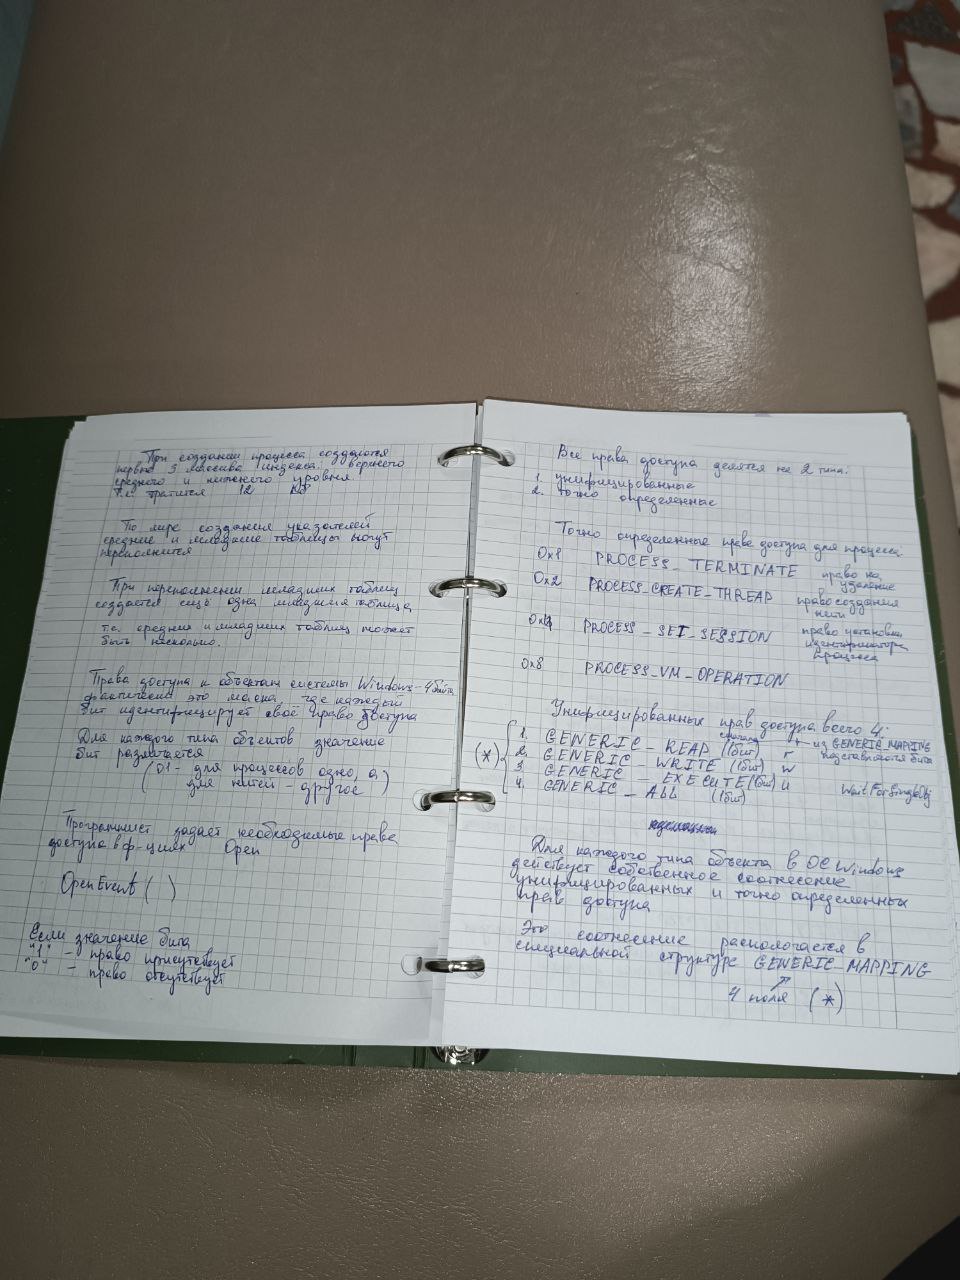 При создании процесса создаются
первые 3 массива индекса верхнего
среднего и нижнего уровня
т.е. тратится 12 Кб
По мере создания указателей
средние и младшие таблицы могут
переполнится
При переполнении младших таблиц
создаётся ещё одна младшая таблица,
т.е. средних и младших таблиц может
быть несколько.
Права доступа к объектам системы Windows - 4 байта
фактически это маска где каждый
бит идентифицирует своё право доступа
Для каждого типа объектов значение
бит различается
(01 - для процессов одно, а
для нитей - другое)
Программист задает необходимые права
доступа в ф-циях Open
OpenEvent ( )
Если значение бита
"1" - право присутствует
"0" - право отсутствует
Все права доступа делятся на 2 типа:
1. унифицированные
2. точно определенные
Точно определенные права доступа для процесса:
0x1 PROCESS_TERMINATE право на удаление
0x2 PROCESS_CREATE_THREAD право создания нити
0x4 PROCESS_SET_SESSION право установки идентификатора процесса
0x8 PROCESS_VM_OPERATION
Унифицированных прав доступа всего 4:
1. GENERIC_READ (1бит) r из GENERIC_MAPPING
2. GENERIC_WRITE (1бит) w подставляются биты
(*) 3 GENERIC_EXECUTE (1бит)
4. GENERIC_ALL (1бит) WaitForSingleObj
Для каждого типа объекта в ОС Windows
действует собственное соотнесение
унифицированных и точно определенных
прав доступа
Это соотнесение располагается в
специальной структуре GENERIC_MAPPING
4 поля (*)